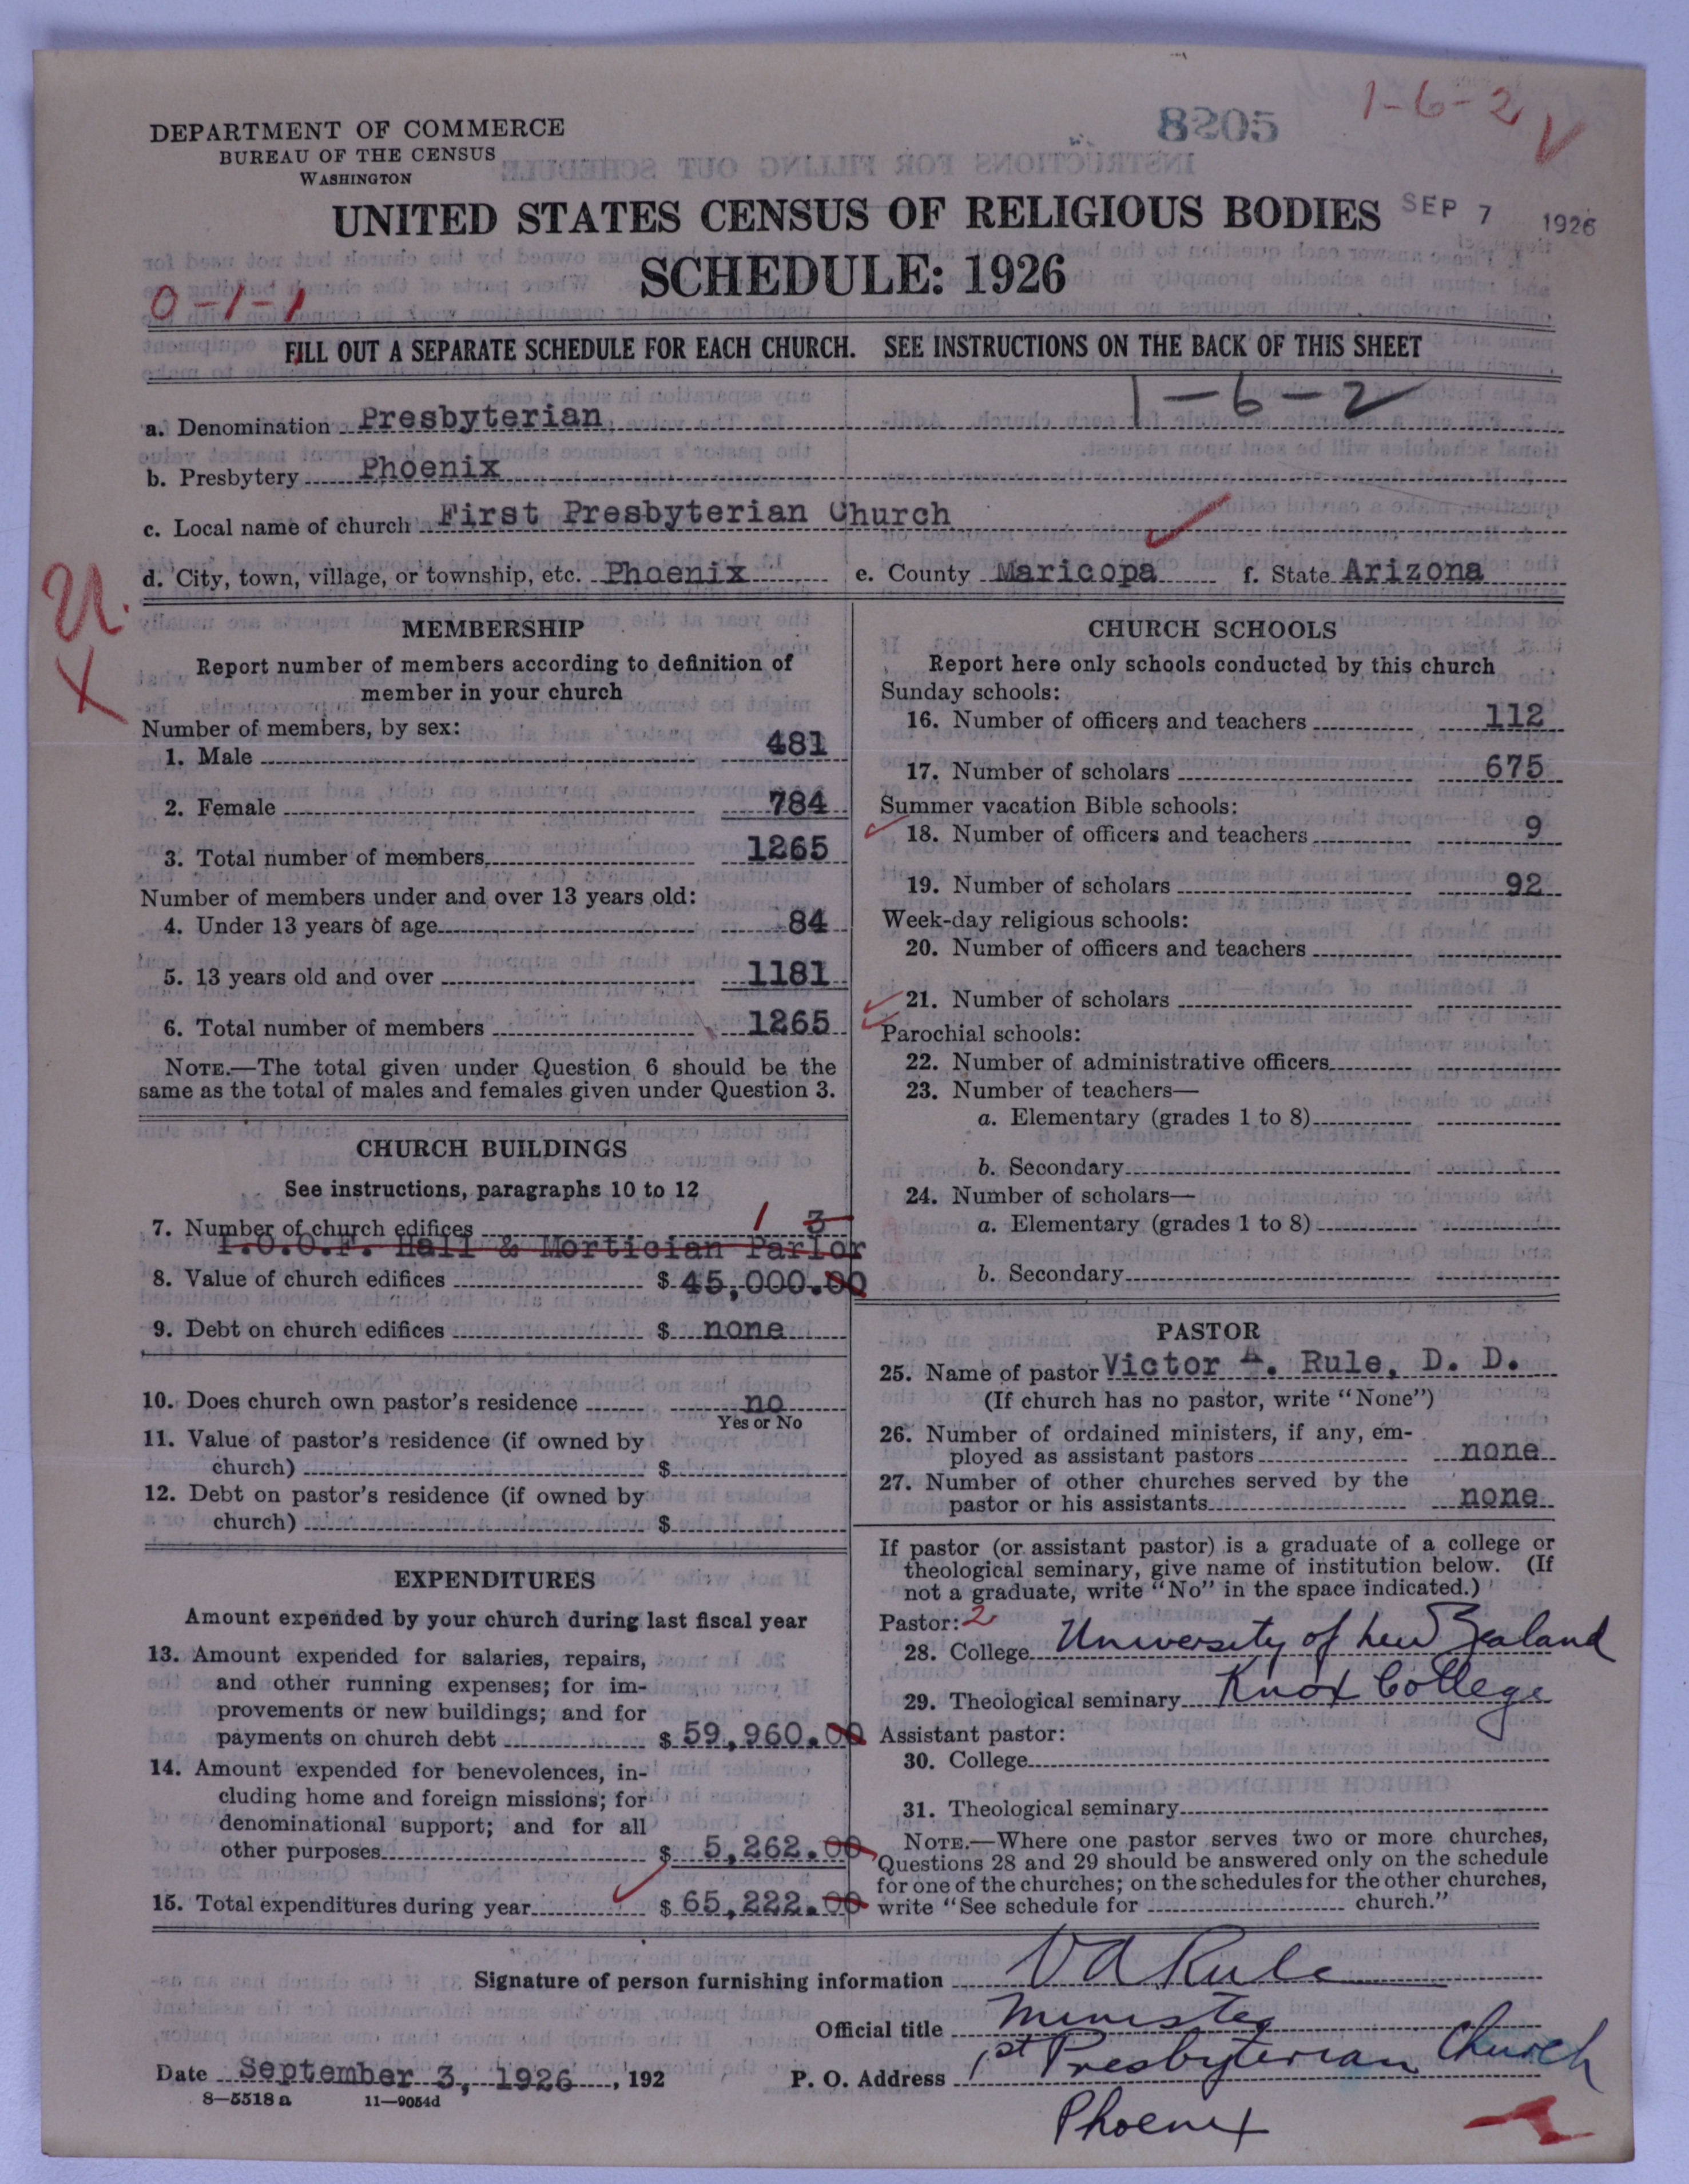 DEPARTMENT OF COMMERCE
BUREAU OF THE CENSUS
WASHINGTON
8205
1-6-2
UNITED STATES CENSUS OF RELIGIOUS BODIES
SEP 7 1926
SCHEDULE: 1926
0-1-1
FILL OUT A SEPARATE SCHEDULE FOR EACH CHURCH. SEE INSTRUCTIONS ON THE BACK OF THIS SHEET
1-6-2
a. Denomination Presbyterian
b. Presbytery Phoenix
c. Local name of church First Presbyterian Church
d. City, town, village, or township, etc. Phoenix e. County Maricopa f. State Arizona
MEMBERSHIP
Report number of members according to definition of
member in your church
Number of members, by sex:
1. Male 481
2. Female 784
3. Total number of members 1265
Number of members under and over 13 years old:
4. Under 13 years of age 84
5. 13 years old and over 1181
6. Total number of members 1265
NOTE.—The total given under Question 6 should be the
same as the total of males and females given under Question 3.
CHURCH BUILDINGS
See instructions, paragraphs 10 to 12
7. Number of church edifices 1 3
I.O.O.F. Hall & Mortician Parlor
8. Value of church edifices $ 45,000.00
9. Debt on church edifices $ none
10. Does church own pastor's residence no
Yes or No
11. Value of pastor's residence (if owned by
church) $
12. Debt on pastor's residence (if owned by
church) $
EXPENDITURES
Amount expended by your church during last fiscal year
13. Amount expended for salaries, repairs,
and other running expenses; for im-
provements or new buildings; and for
payments on church debt $ 59,960.00
14. Amount expended for benevolences, in-
cluding home and foreign missions; for
denominational support; and for all
other purposes $ 5,262.00
15. Total expenditures during year $ 65,222.00
CHURCH SCHOOLS
Report here only schools conducted by this church
Sunday schools:
16. Number of officers and teachers 112
17. Number of scholars 675
Summer vacation Bible schools:
18. Number of officers and teachers 9
19. Number of scholars 92
Week-day religious schools:
20. Number of officers and teachers
21. Number of scholars
Parochial schools:
22. Number of administrative officers
23. Number of teachers—
a. Elementary (grades 1 to 8)
b. Secondary
24. Number of scholars—
a. Elementary (grades 1 to 8)
b. Secondary
PASTOR
25. Name of pastor Victor A. Rule, D. D.
(If church has no pastor, write "None")
26. Number of ordained ministers, if any, em-
ployed as assistant pastors none
27. Number of other churches served by the
pastor or his assistants none
If pastor (or assistant pastor) is a graduate of a college or
theological seminary, give name of institution below. (If
not a graduate, write "No" in the space indicated.)
Pastor: 2
28. College University of New Zealand
29. Theological seminary Knox College
Assistant pastor:
30. College
31. Theological seminary
NOTE.—Where one pastor serves two or more churches,
Questions 28 and 29 should be answered only on the schedule
for one of the churches; on the schedules for the other churches,
write "See schedule for church."
Signature of person furnishing information V A Rule
Official title Minister
Date September 3, 1926, 192 P. O. Address 1st Presbyterian Church
8—5518a 11—9054d
Phoenix